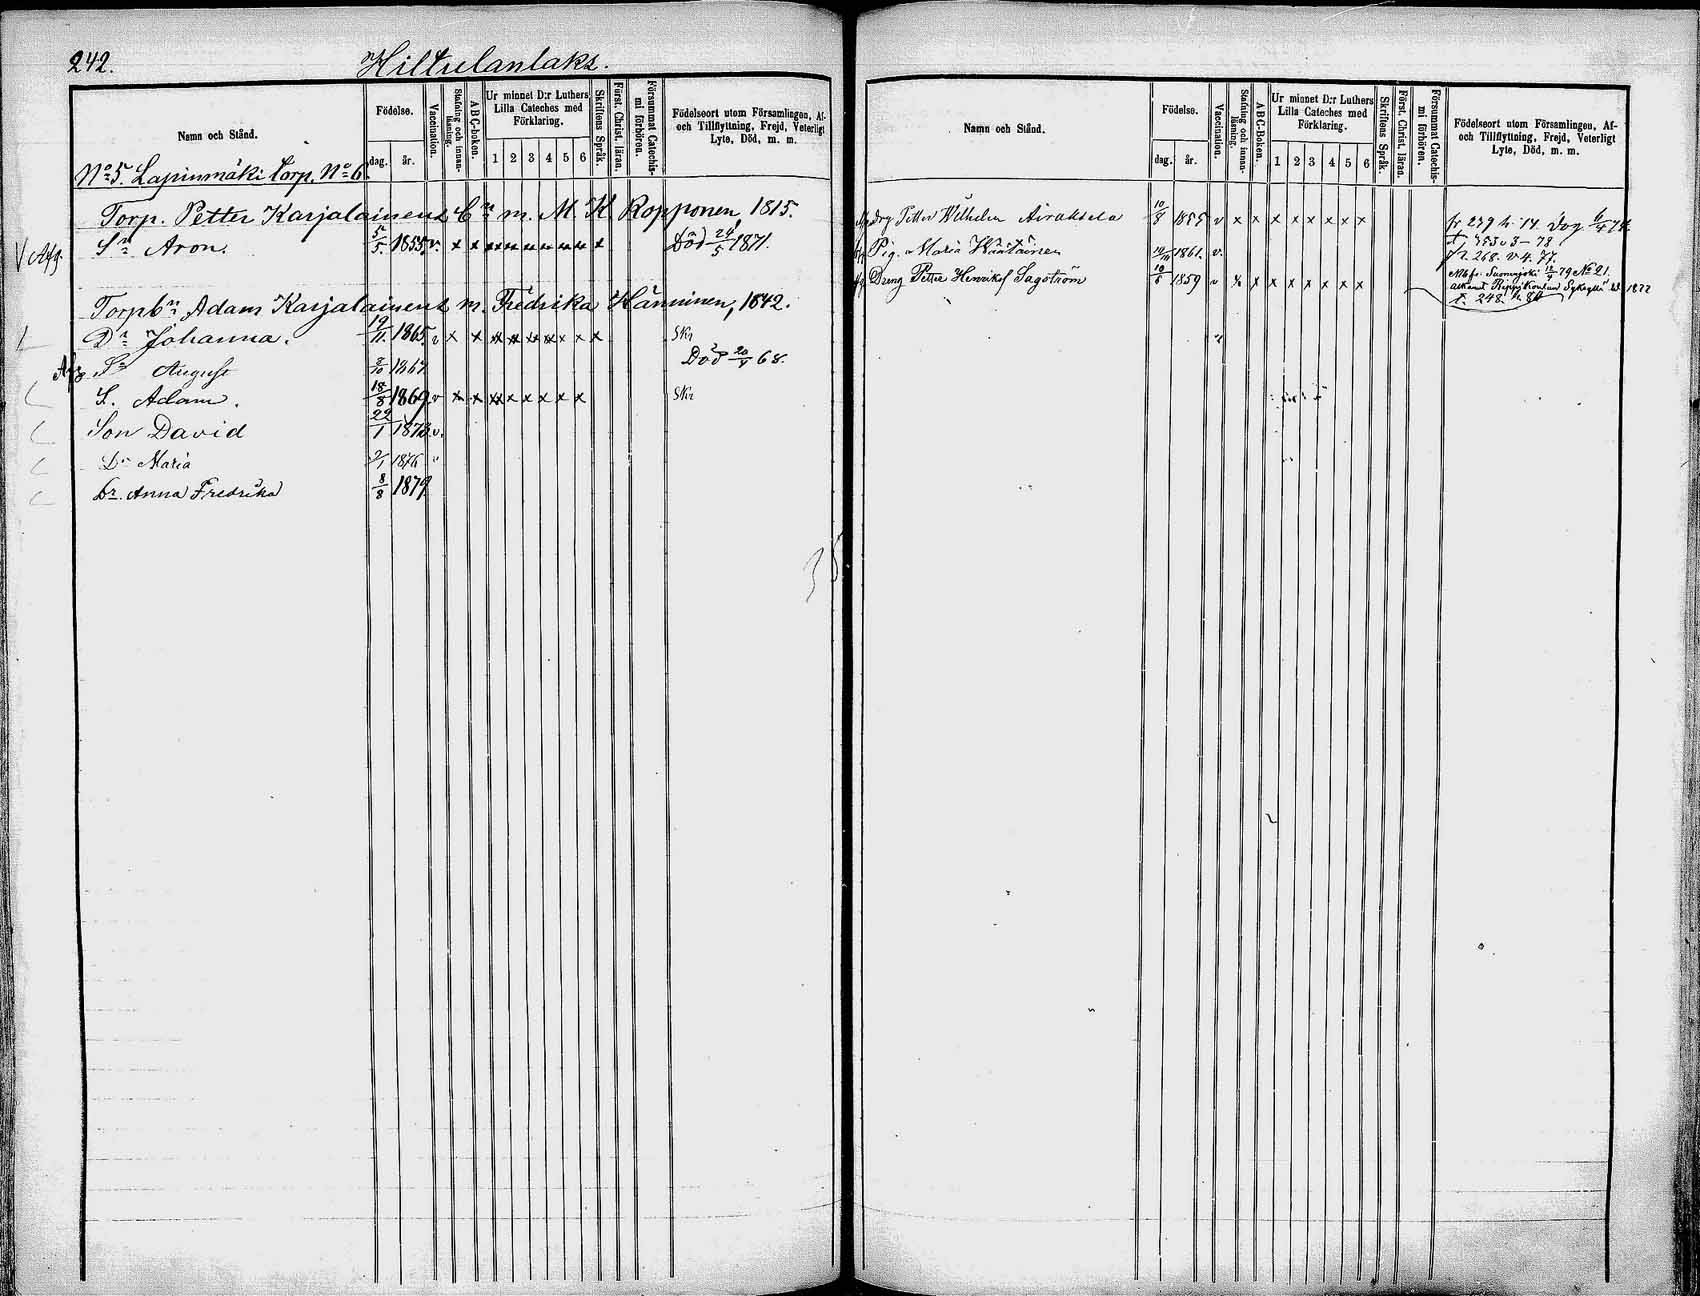 242.
Hiltulanlaks.
Namn och Stånd.
Födelse.
dag.
år.
Vaccination.
Stafning och innan-läsning.
ABC-boken.
Ur minnet D:r Luthers
Lilla Cateches med
Förklaring.
1 2 3 4 5 6
Skriftens Språk.
Först. Christ. läran.
Försummat Catechis-
mi förhören.
Födelseort utom Församlingen, Af-
och Tillflyttning, Frejd, Veterligt
Lyte, Död, m. m.
No 5. Lapinmäki torp. No 6
Torp. Petter Karjalainens Enk. m. M K Ropponen, 1815.
Sn Aron. 5/5. 1855 v. x x x x x x x x x Död 24/5 1871.
Torpbn Adam Karjalainens m. Fredrika Hänninen, 1842.
Dr Johanna. 19/11. 1865 v x x x x x x x x x Skr
Sn August 8/10 1867. Död 20/4 68.
S. Adam. 18/8 1869 v x x x x x x x x Skr
Son David 22/1 1873 v.
Dr Maria 2/1 1876 "
Dr. Anna Fredrika 8/8 1879
Namn och Stånd.
Födelse.
dag.
år.
Vaccination.
Stafning och innan-läsning.
ABC-Boken.
Ur minnet D:r Luthers
Lilla Cateches med
Förklaring.
1 2 3 4 5 6
Skriftens Språk.
Först. Christ. läran.
Försummat Catechis-
mi förhören.
Födelseort utom Församlingen, Af-
och Tillflyttning, Frejd, Veterligt
Lyte, Död, m. m.
Drg Petter Wilhelm Airaksela 10/8 1855 v x x x x x x x x fr 279 h. 14
Pig. Maria 1861. v. fr. 268. v 4. 77.
Dreng Petter Henrikss Sagström 10/6 1859 v x x x x x x x x Mb fr. Suonnejoki 12/4 79 No 21.
t. 248. h. 80